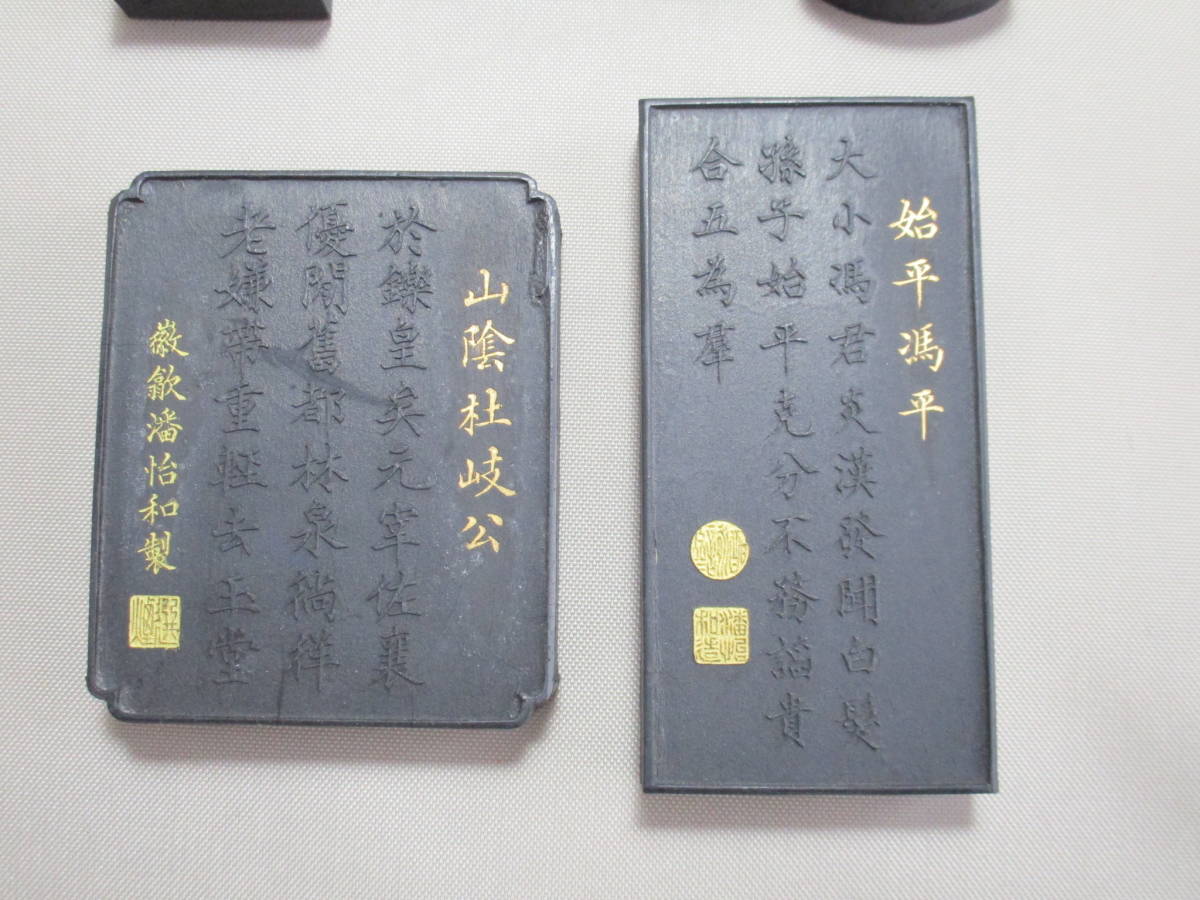 始平馮平
大小馮君炎漢發聞白髮
孫子始平克分不務諂貴
合五為羣
潘怡和造
山陰杜岐公
於鑠皇矣元宰佐襄
優閒舊都林泉徜徉
老嫌帶重輕去玉堂
徽歙潘怡和製